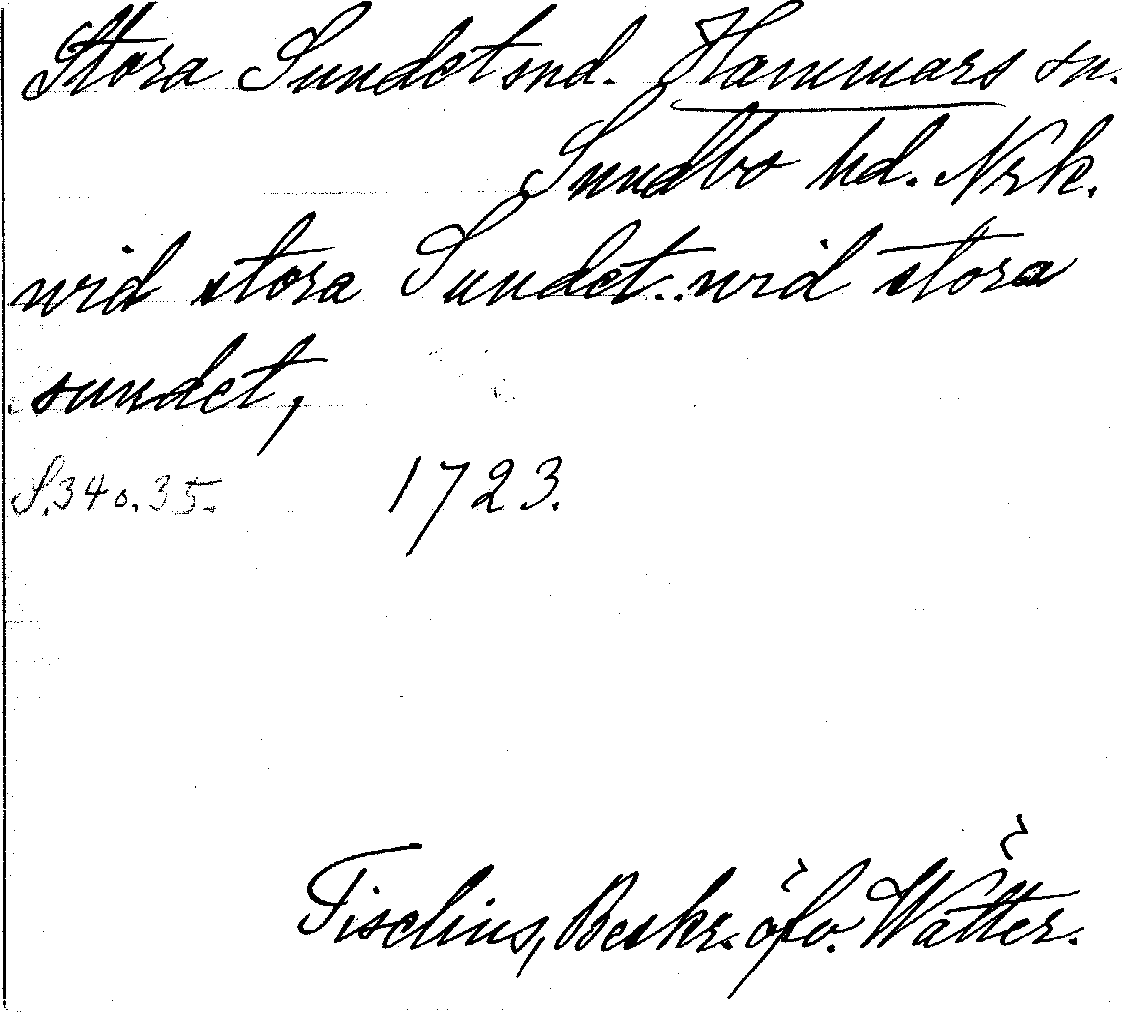 Stora Sundet snd. Hammars sn.
Sundbo hd. Nrk.
wid stora Sundet.. wid stora
sundet,
S. 34 o. 35. 1723.
Tiselius, Beskr. öfv. Wätter.